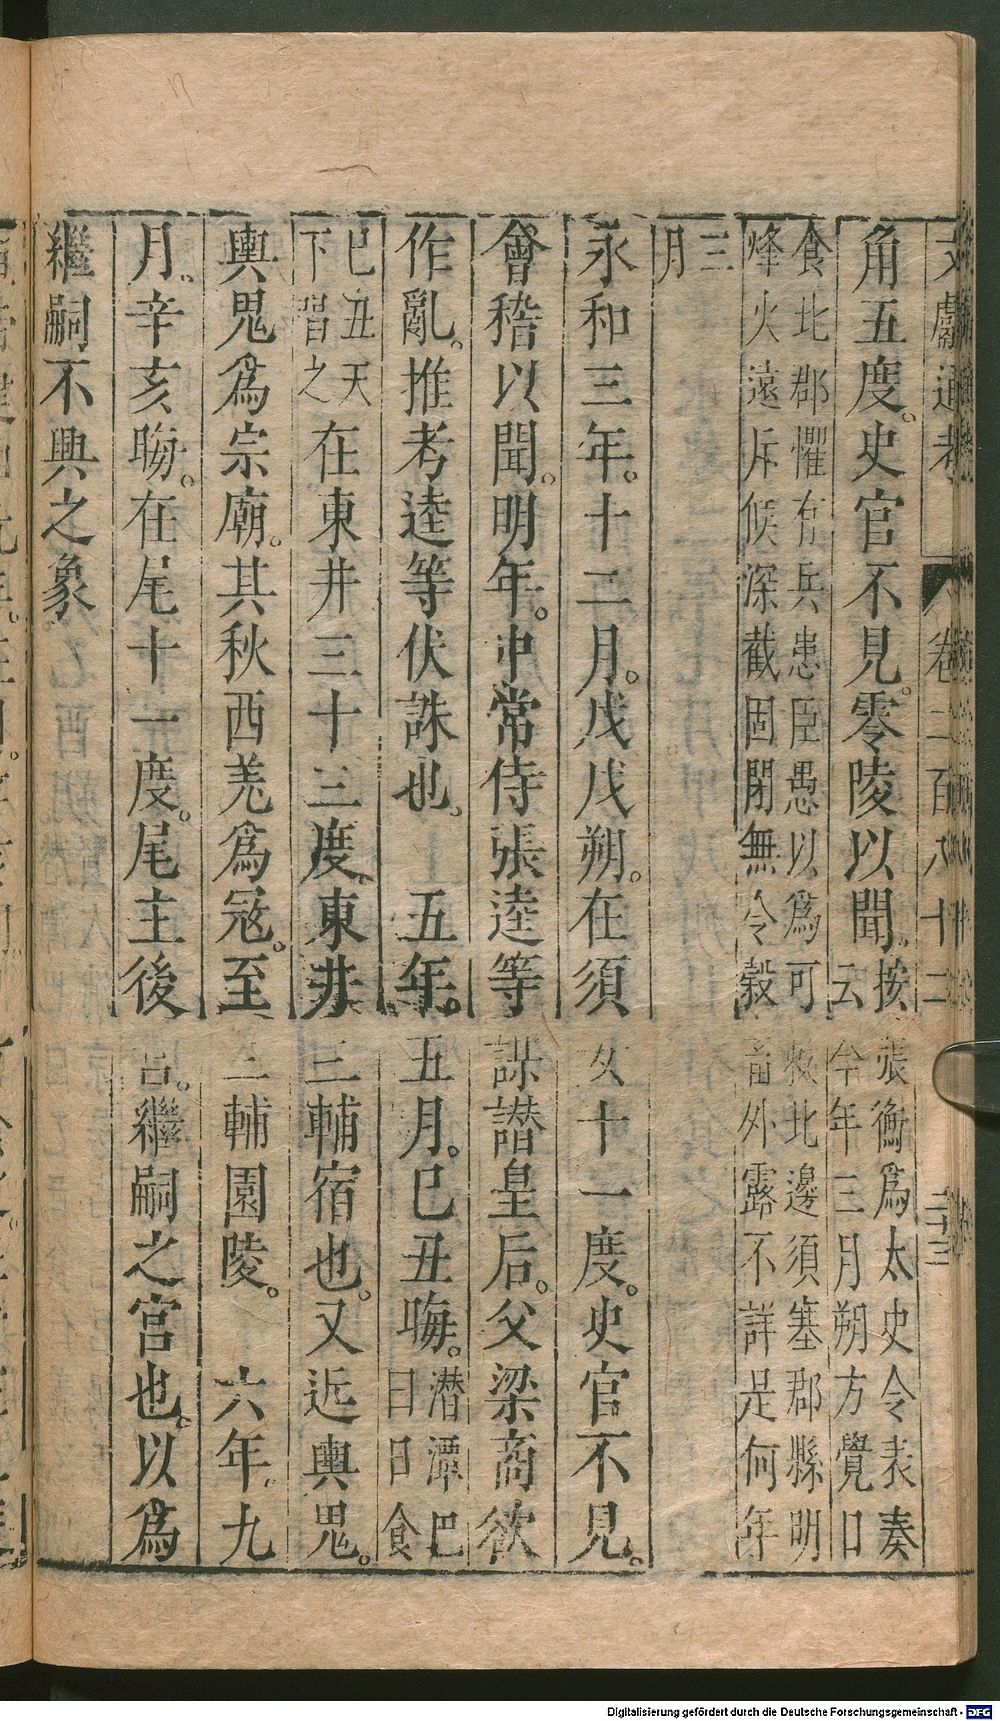 文獻通考　卷二百八十二　二十三
角五度。史官不見。零陵以聞。
按張衡爲太史令表奏
云今年三月朔方覺日
食北郡懼有兵患臣愚以爲可敕北邊須塞郡縣明
烽火遠斥候深截固閉無令穀畜外露不詳是何年
三
月
永和三年。十二月。戊戌朔。在須女十一度。史官不見。
會稽以聞。明年。中常侍張逵等謀譖皇后。父梁商欲
作亂。推考逵等伏誅也。　五年。五月。己丑晦。
潛潭巴
曰日食
己丑天
下唱之
在東井三十三度。東井三輔宿也。又近輿鬼。
輿鬼爲宗廟。其秋西羌爲寇。至三輔園陵。　六年。九
月。辛亥晦。在尾十一度。尾主後宮。繼嗣之宮也。以爲
繼嗣不興之象
Digitalisierung gefördert durch die Deutsche Forschungsgemeinschaft - DFG